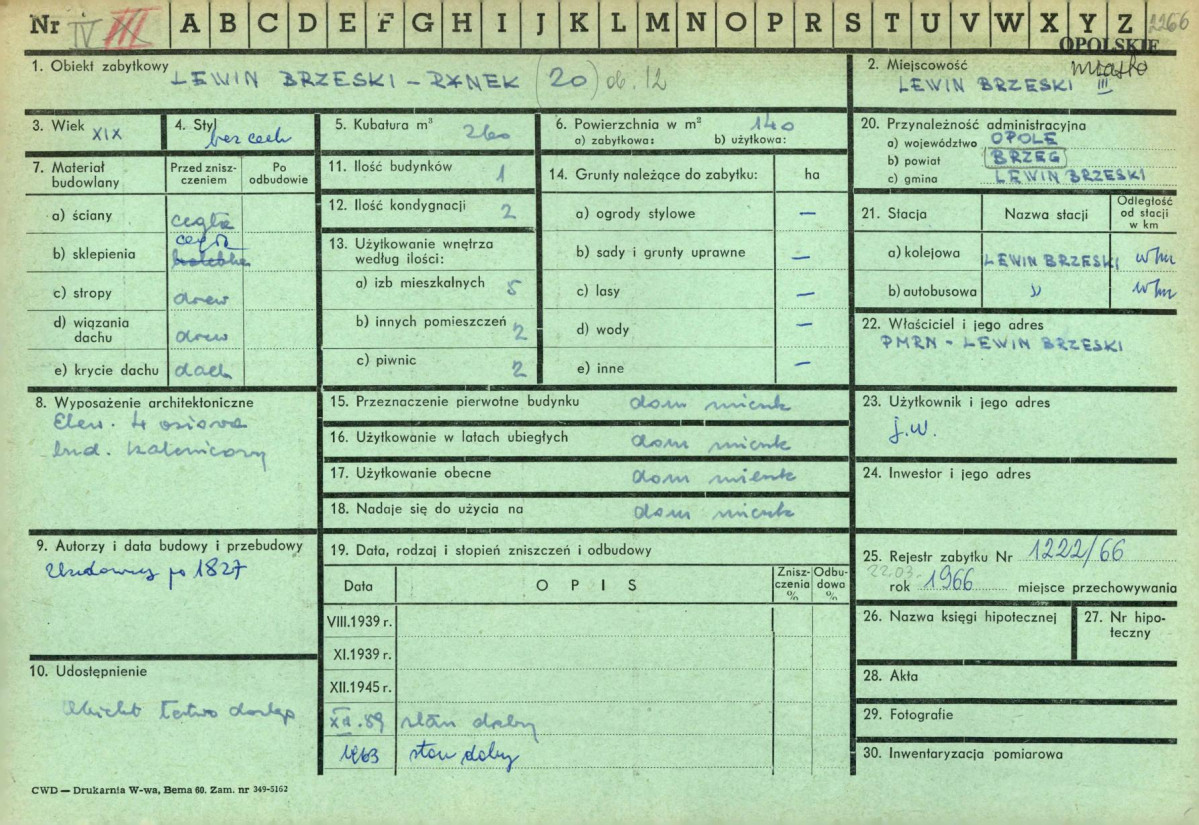 Nr IV III A B C D E F G H I J K L M N O P R S T U V W X Y Z 2266
OPOLSKIE
1. Obiekt zabytkowy LEWIN BRZESKI – RYNEK (20) ob. 12
2. Miejscowość miasto
LEWIN BRZESKI III
3. Wiek XIX
4. Styl bez cech
5. Kubatura m³ 260
6. Powierzchnia w m² 140
a) zabytkowa: b) użytkowa:
20. Przynależność administracyjna
a) województwo OPOLE
b) powiat BRZEG
c) gmina LEWIN BRZESKI
7. Materiał budowlany
Przed zniszczeniem
Po odbudowie
a) ściany cegła
b) sklepienia cegła
c) stropy drew
d) wiązania dachu drew
e) krycie dachu dach
11. Ilość budynków 1
12. Ilość kondygnacji 2
13. Użytkowanie wnętrza
według ilości:
a) izb mieszkalnych 5
b) innych pomieszczeń 2
c) piwnic 2
14. Grunty należące do zabytku: ha
a) ogrody stylowe —
b) sady i grunty uprawne —
c) lasy —
d) wody —
e) inne —
21. Stacja Nazwa stacji Odległość od stacji w km
a) kolejowa LEWIN BRZESKI w/m
b) autobusowa " w/m
22. Właściciel i jego adres
PMRN – LEWIN BRZESKI
8. Wyposażenie architektoniczne
Elew. 4 osiowa
bud. kalenicowy
15. Przeznaczenie pierwotne budynku dom mieszk
16. Użytkowanie w latach ubiegłych dom mieszk
17. Użytkowanie obecne dom mieszk
18. Nadaje się do użycia na dom mieszk
23. Użytkownik i jego adres
j.w.
24. Inwestor i jego adres
9. Autorzy i data budowy i przebudowy
Zbudowany po 1827
19. Data, rodzaj i stopień zniszczeń i odbudowy
Data OPIS Zniszczenia % Odbudowa %
VIII.1939 r.
XI.1939 r.
XII.1945 r.
XII.59 stan dobry
1963 stan dobry
25. Rejestr zabytku Nr 1222/66
22.03.
rok 1966 miejsce przechowywania
26. Nazwa księgi hipotecznej
27. Nr hipoteczny
28. Akta
29. Fotografie
30. Inwentaryzacja pomiarowa
10. Udostępnienie
Obiekt łatwo dostęp
CWD — Drukarnia W-wa, Bema 60. Zam. nr 349-5162